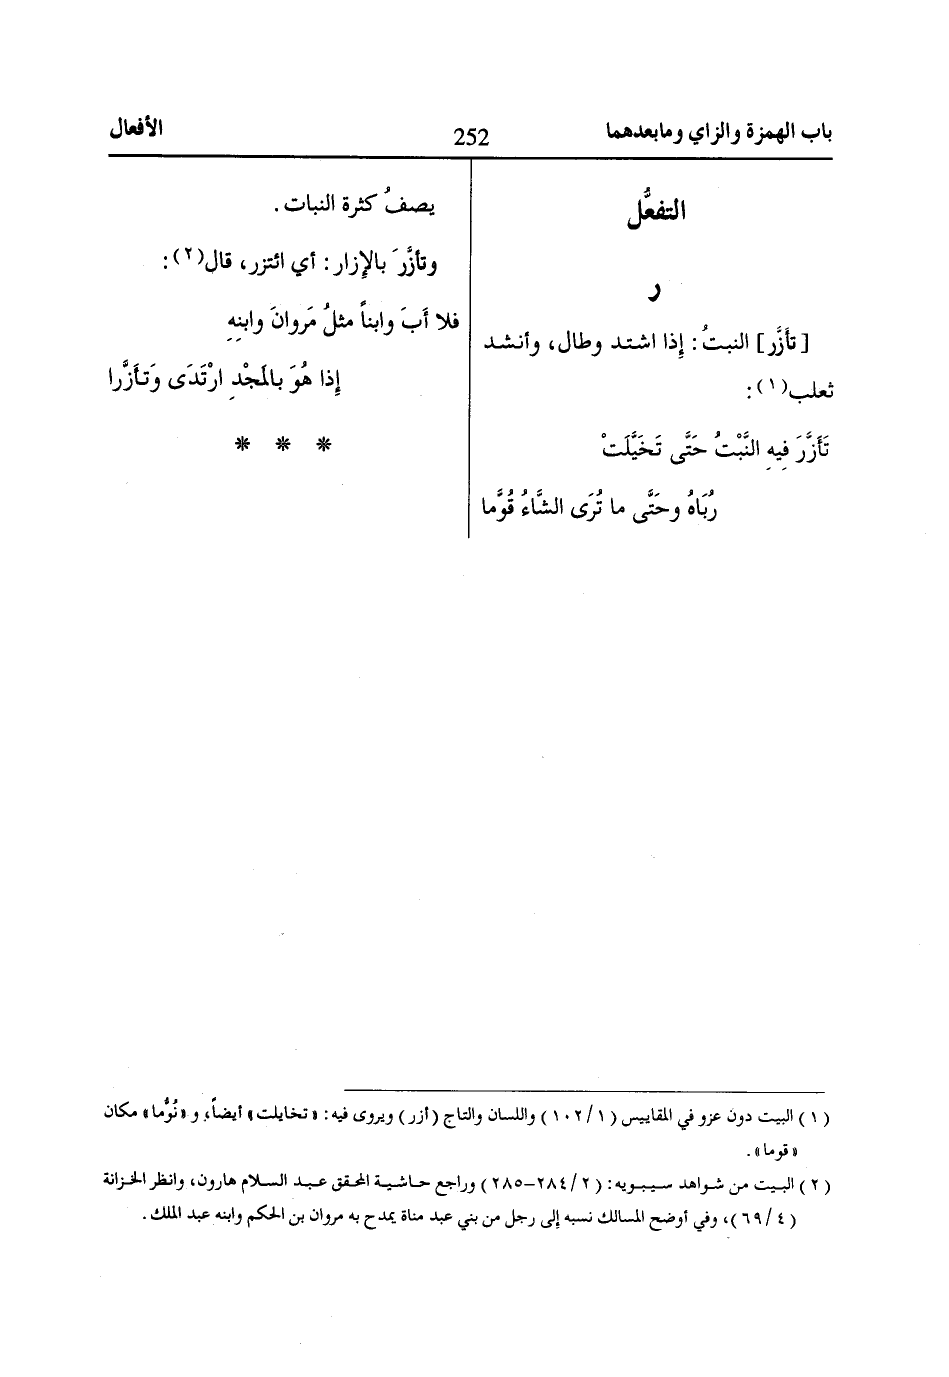 باب الهمزة والزاي ومابعدهما
252
الأفعال
التفعُّل
ر
[تأَزَّر] النبتُ: إِذا اشتد وطال، وأنشد
ثعلب(١):
تَأَزَّرَ فِيهِ النَّبْتُ حَتَّى تَخَيَّلَتْ
رُبَاهُ وحَتَّى ما تُرَى الشَّاءُ قُوَّما
يصفُ كثرة النبات.
وتأزَّرَ بالإِزار: أي ائتزر، قال(٢):
فلا أَبَ وابناً مثلُ مَروانَ وابنِهِ
إِذا هُوَ بالمَجْدِ ارْتَدَى وَتَأَزَّرا
* * *
(١) البيت دون عزو في المقاييس (١/١٠٢) واللسان والتاج (أزر) ويروى فيه: «تخايلت» أيضاً، و«نُوَّما» مكان
«قوما».
(٢) البيت من شواهد سيبويه: (٢/٢٨٤-٢٨٥) وراجع حاشية المحقق عبد السلام هارون، وانظر الخزانة
(٤/٦٩)، وفي أوضح المسالك نسبه إلى رجل من بني عبد مناة يمدح به مروان بن الحكم وابنه عبد الملك.